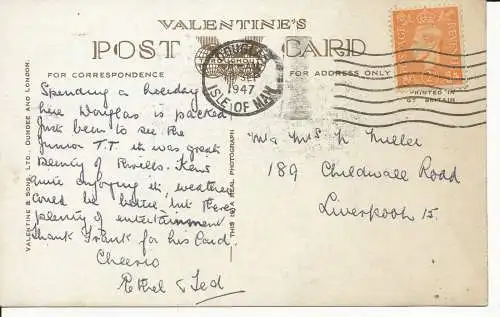 VALENTINE'S
POST CARD
FOR CORRESPONDENCE
FOR ADDRESS ONLY
DOUGLAS
SEP
1947
ISLE OF MAN
PRINTED IN
GT BRITAIN
VALENTINE & SONS, LTD., DUNDEE AND LONDON.
THIS IS A REAL PHOTOGRAPH
Spending a holiday
here Douglas is packed
Just been to see the
Junior T.T. it was great
plenty of thrills.
quite enjoying it, weather
could be better, but there
plenty of entertainment
thank Frank for his Card
Cheerio
Ethel & Ted
Mr Mrs N Miller
189 Childwall Road
Liverpool 15.